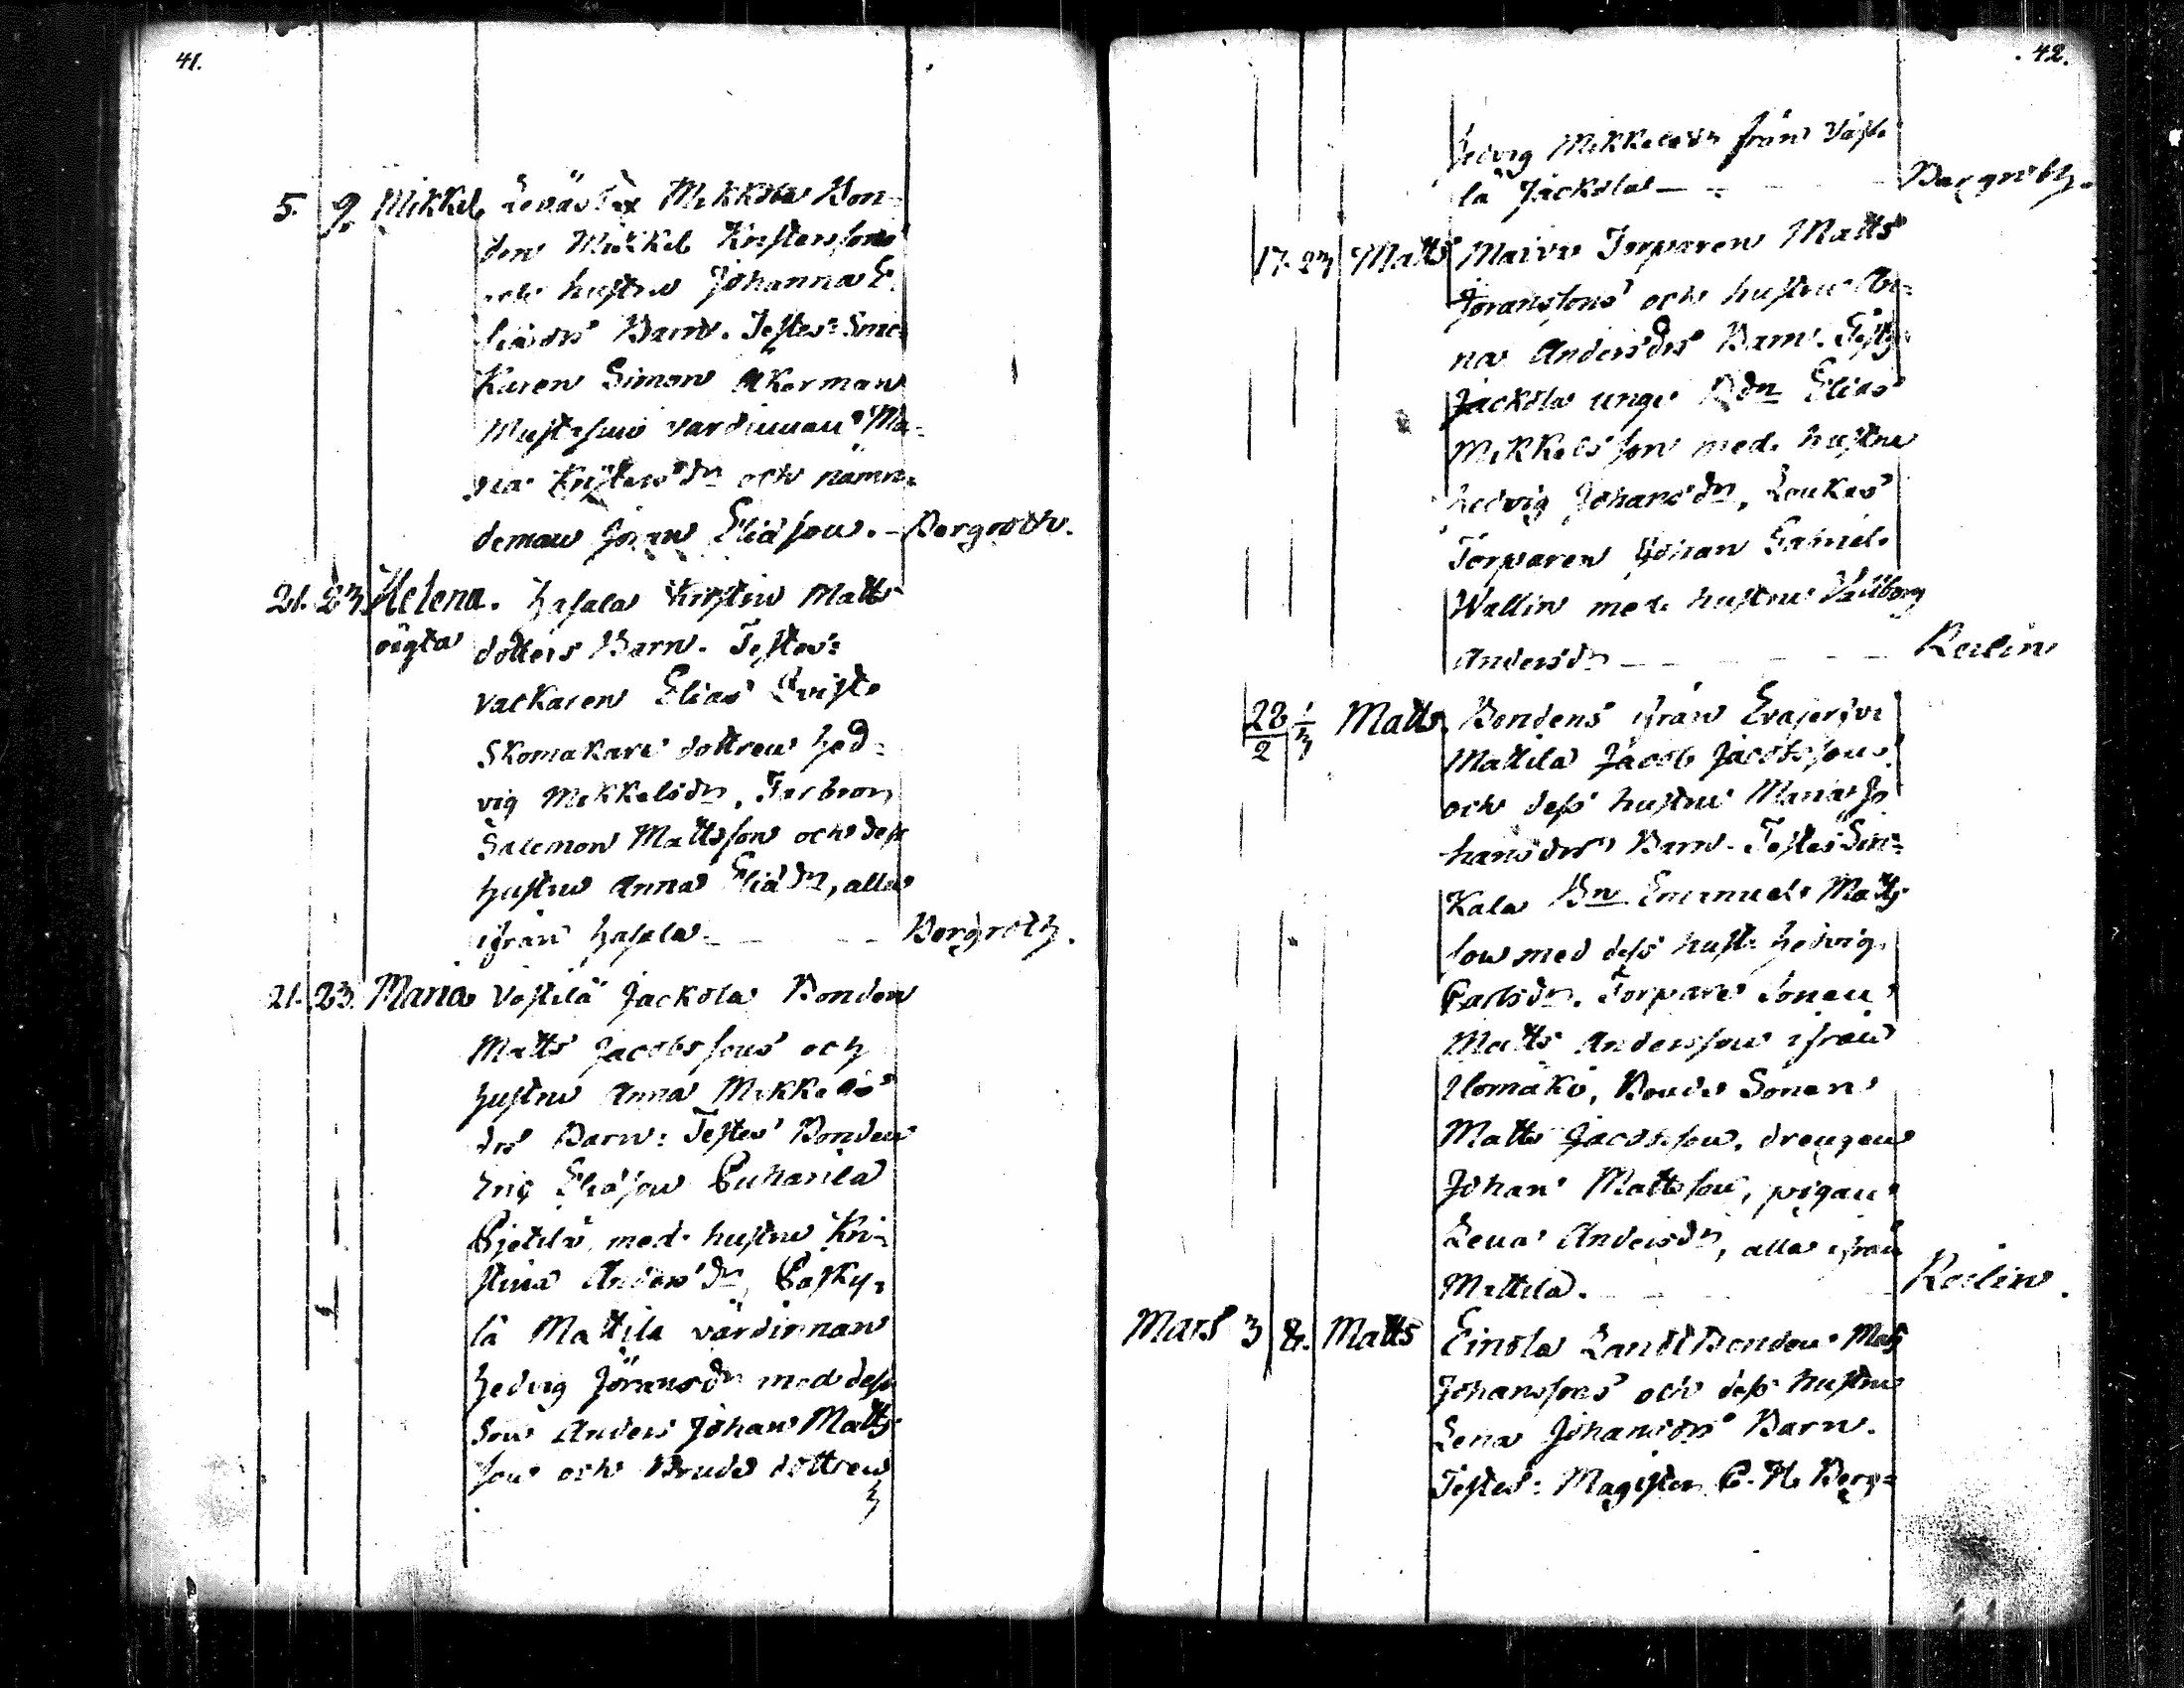 41.
5. 9. Mikkel Levästix Mikkola Bon-
den Mikkel Kristerssons
och hustru Johanna E-
liædrs Barn. Testes: Snic-
karen Simon Akerman
värdinnan Ma-
ria Kristersdr och nämn-
deman Jöran Eliasson. - Bergroth.
21. 23. Helena. Hasala Kirstin Matts
oägta dotters Barn. Testes:
Vackaren Elias Qvist
Skomakare dottren Hed-
vig Mikkelsdr, Farbron
Salomon Mattsson och dess
hustru Anna Eliædr, alla
ifrån Hasala - - - Bergroth.
21. 23. Maria Västilä Jackola Bonden
Matts Jacobssons och
hustru Anna Mikkels
drs Barn: Testes Bonden
Eric Eliasson Puharila
Pjetilä med hustru Kri-
stina Andersdr,
lä Mattila värdinnan
Hedvig Jöransdr med dess
Son Anders Johan Matts
son och Bonde dottren
42.
Hedvig Mikkelsdr från Västi-
lä Jackola - - - Bergroth.
17. 23 Matts Torparen Matts
Jöranssons och hustru An-
na Andersdrs Barn. Test:
Jackola unge Bdn Elias
Mikkelsson med hustru
Hedvig Johansdr, Loukas
Torparen Johan Gabriel
Wallin med hustru Vallborg
Andersdr - - - Reilin
28/2 1/3 Matts. Bondens ifrån Evajervi
Mattila Jacob Jacobssons
och dess hustru Maria Jo
hansdrs Barn. Testes Sin-
kala Bn Emanuel Matts
son med dess hust: Hedvig
Carlsdr. Torpare Sonen
Matts Andersson ifrån
Ilomäki, Bonde Sonen
Matts Jacobsson, drengen
Johan Mattsson, pigan
Lena Andersdr, alla ifrån
Mattila. - - - Reilin.
Mars 3 8. Matts Einola Landtbonden Matts
Johanssons och dess hustru
Lena Johansdrs Barn.
Testes: Magister C. H. Berg-